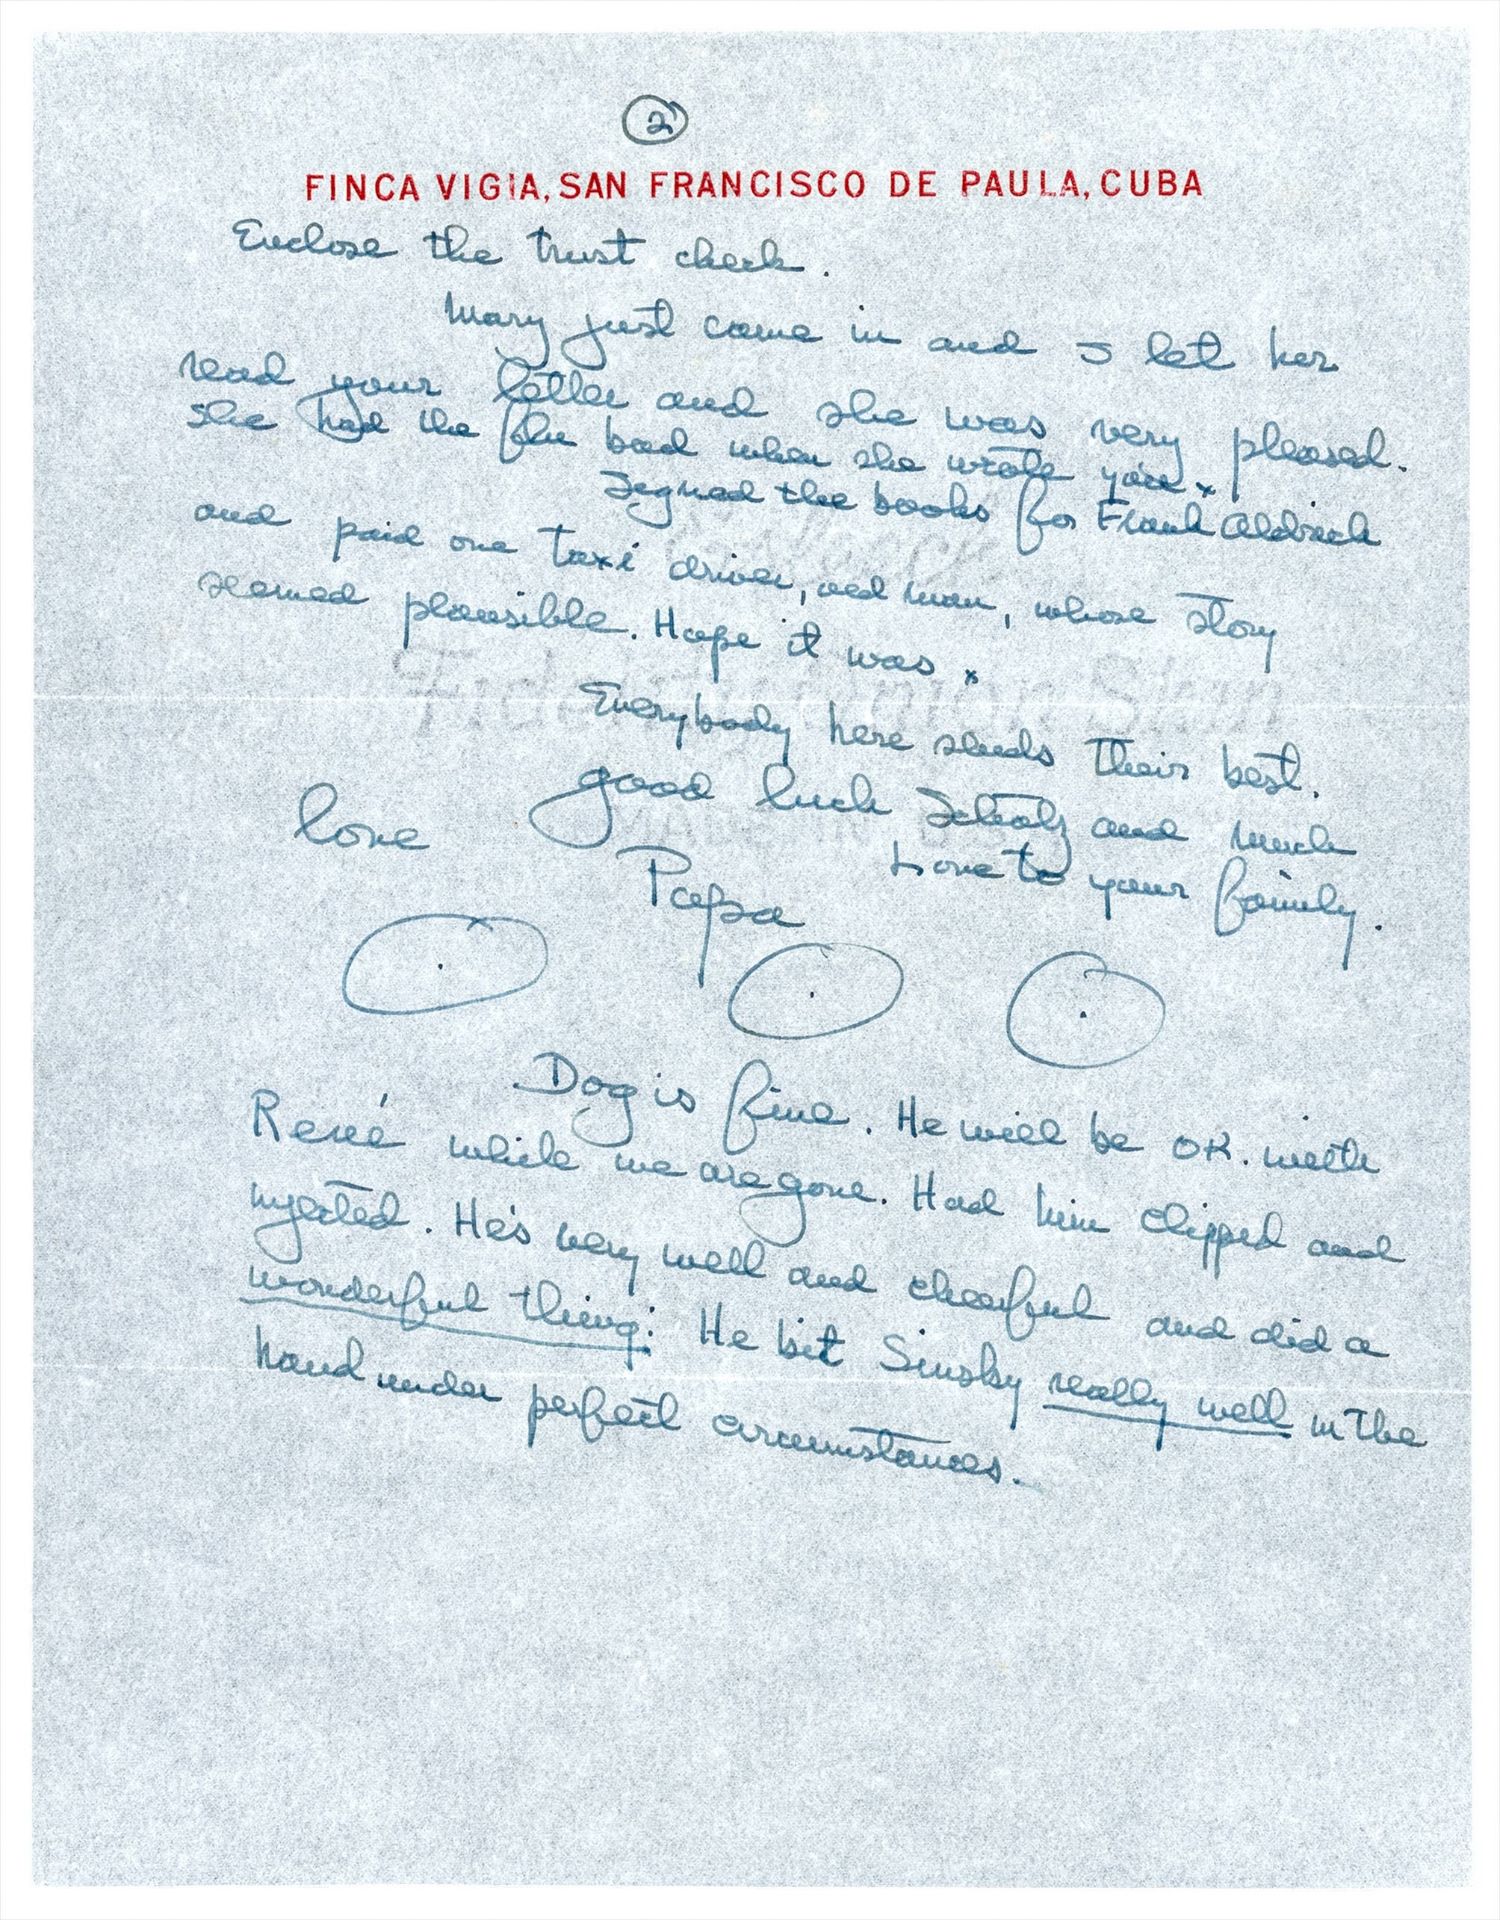 2
FINCA VIGIA, SAN FRANCISCO DE PAULA, CUBA
Enclose the trust check.
Mary just came in and I let her
read your letter and she was very pleased.
she had the flu bad when she wrote you x
Signed the books for Frank Aldrich
and paid one taxi driver, old man, whose story
seemed plausible. Hope it was x
Everybody here sends their best.
good luck Schatz and much
Love to your family.
love
Papa
Dog is fine. He will be OK. with
René while we are gone. Had him clipped and
injected. He's very well and cheerful and did a
wonderful thing: He bit Sinsky really well in the
hand under perfect circumstances.